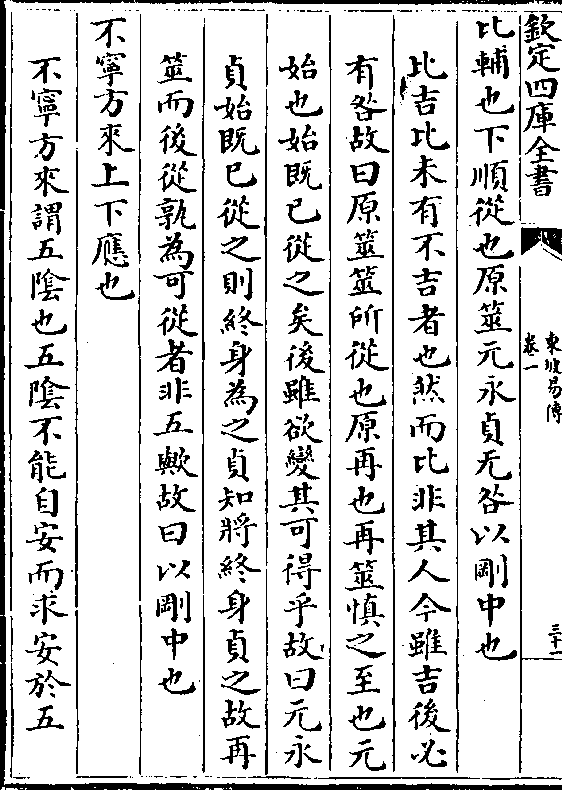 欽定四庫全書
東坡易傳
卷一
三十一
比輔也下順從也原筮元永貞无咎以剛中也
比吉比未有不吉者也然而比非其人今雖吉後必
有咎故曰原筮筮所從也原再也再筮慎之至也元
始也始既已從之矣後雖欲變其可得乎故曰元永
貞始既已從之則終身為之貞知將終身貞之故再
筮而後從孰為可從者非五歟故曰以剛中也
不寧方來上下應也
不寧方來謂五陰也五陰不能自安而求安於五